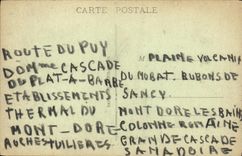 CARTE POSTALE
ROUTE DU PUY
DOMME CASCADE
DU PLAT-A-BARBE
ETABLISSEMENTS
THERMAL DU
MONT-DORE
ROCHES TUILIERES
PLAINE VOLCANIC
DU MOBAT. RUBONS DE
SANCY.
MONT DORE LES BAIN
COLONNE ROMAINE
GRANDE CASCADE
SANADOIRE